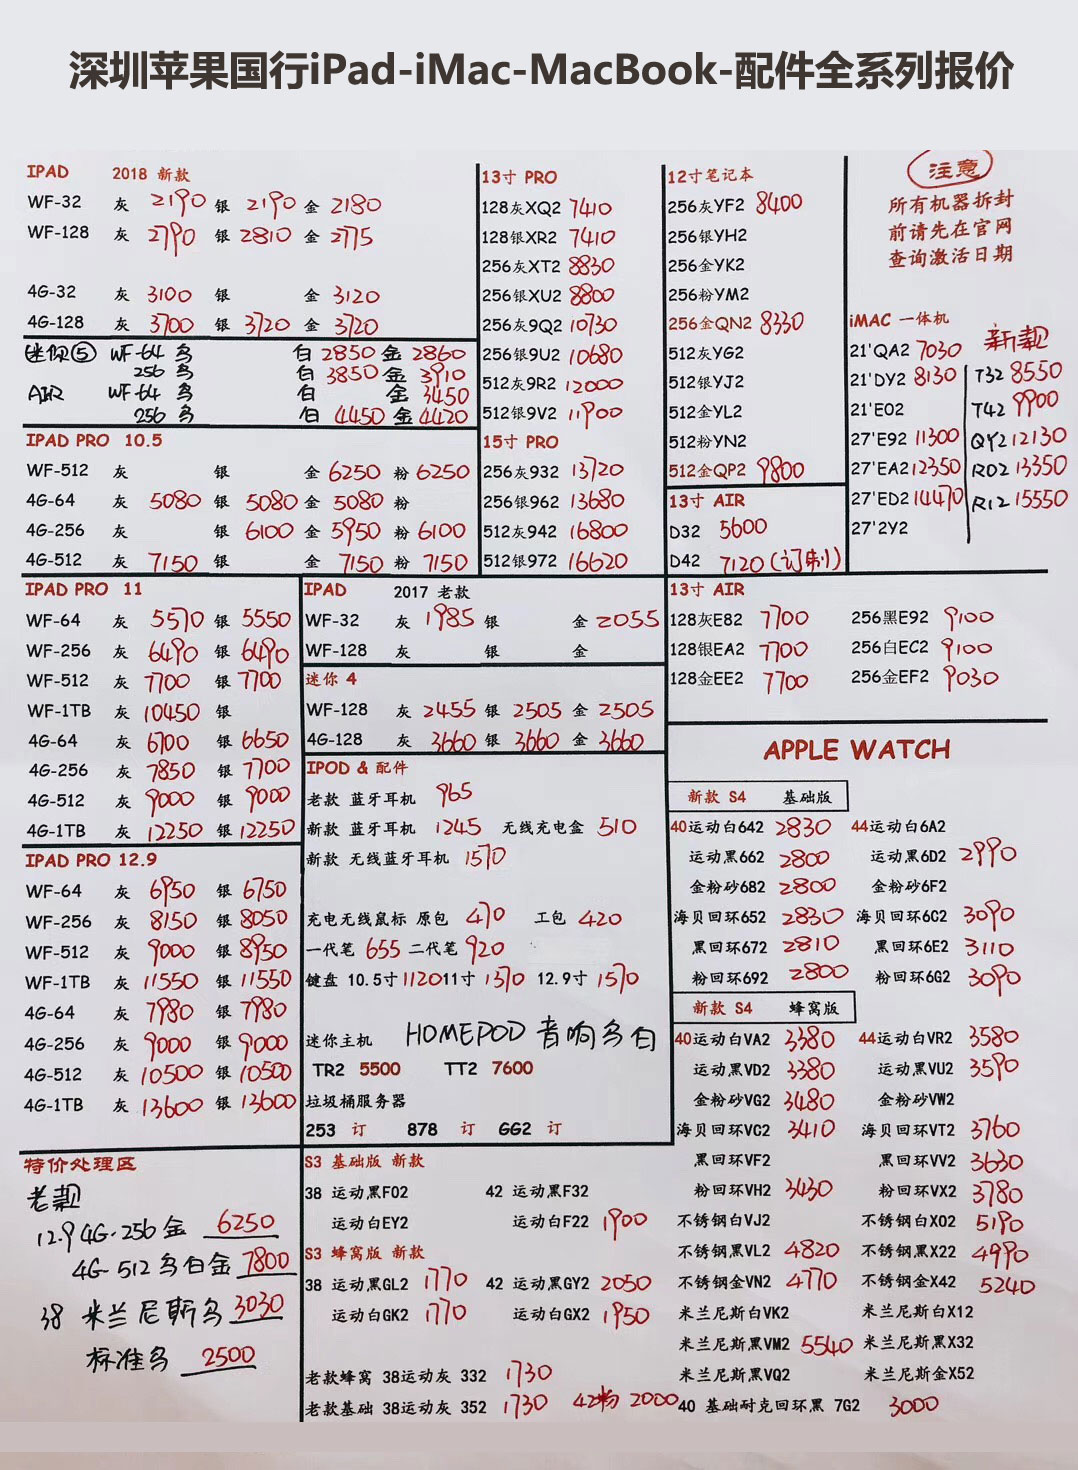 深圳苹果国行iPad-iMac-MacBook-配件全系列报价
IPAD 2018 新款
WF-32 灰 2190 银 2190 金 2180
WF-128 灰 2790 银 2810 金 2775
4G-32 灰 3100 银 金 3120
4G-128 灰 3700 银 3720 金 3720
迷你⑤ WF-64 白 2850 金 2860
256 白 3850 金 3910
AIR WF-64 白 金 3450
256 白 4450 金 4420
IPAD PRO 10.5
WF-512 灰 银 金 6250 粉 6250
4G-64 灰 5080 银 5080 金 5080 粉
4G-256 灰 银 6100 金 5950 粉 6100
4G-512 灰 7150 银 金 7150 粉 7150
IPAD PRO 11
WF-64 灰 5570 银 5550
WF-256 灰 6490 银 6490
WF-512 灰 7700 银 7700
WF-1TB 灰 10450 银
4G-64 灰 6700 银 6650
4G-256 灰 7850 银 7700
4G-512 灰 9000 银 9000
4G-1TB 灰 12250 银 12250
IPAD PRO 12.9
WF-64 灰 6950 银 6750
WF-256 灰 8150 银 8050
WF-512 灰 9000 银 8950
WF-1TB 灰 11550 银 11550
4G-64 灰 7980 银 7980
4G-256 灰 9000 银 9000
4G-512 灰 10500 银 10500
4G-1TB 灰 13600 银 13600
特价处理区
老款
12.9 4G-256 金 6250
4G-512 白金 7800
38 米兰尼斯 3030
标准 2500
13寸 PRO
128灰XQ2 7410
128银XR2 7410
256灰XT2 8830
256银XU2 8800
256灰9Q2 10730
256银9U2 10680
512灰9R2 12000
512银9V2 11900
15寸 PRO
256灰932 13720
256银962 13680
512灰942 16800
512银972 16620
12寸笔记本
256灰YF2 8400
256银YH2
256金YK2
256粉YM2
256金QN2 8330
512灰YG2
512银YJ2
512金YL2
512粉YN2
512金QP2 9800
13寸 AIR
D32 5600
D42 7120(订制)
注意
所有机器拆封
前请先在官网
查询激活日期
iMAC 一体机 新款
21'QA2 7030
21'DY2 8130
21'E02
27'E92 11300
27'EA2 12350
27'ED2 14470
27'2Y2
T32 8550
T42 9900
QY2 12130
R02 13350
R12 15550
IPAD 2017 老款
WF-32 灰 1985 银 金 2055
WF-128 灰 银 金
迷你 4
WF-128 灰 2455 银 2505 金 2505
4G-128 灰 3660 银 3660 金 3660
IPOD & 配件
老款 蓝牙耳机 965
新款 蓝牙耳机 1245 无线充电盒 510
新款 无线蓝牙耳机 1570
充电无线鼠标 原包 470 工包 420
一代笔 655 二代笔 920
键盘 10.5寸 1120 11寸 1370 12.9寸 1570
迷你主机 HOMEPOD 音响 白
TR2 5500 TT2 7600
垃圾桶服务器
253 订 878 订 GG2 订
S3 基础版 新款
38 运动黑F02 42 运动黑F32
运动白EY2 运动白F22 1900
S3 蜂窝版 新款
38 运动黑GL2 1770 42 运动黑GY2 2050
运动白GK2 1770 运动白GX2 1950
老款蜂窝 38运动灰 332 1730
老款基础 38运动灰 352 1730 42粉 2000
13寸 AIR
128灰E82 7700 256黑E92 9100
128银EA2 7700 256白EC2 9100
128金EE2 7700 256金EF2 9030
APPLE WATCH
新款 S4 基础版
40运动白642 2830 44运动白6A2
运动黑662 2800 运动黑6D2 2990
金粉砂682 2800 金粉砂6F2
海贝回环652 2830 海贝回环6C2 3090
黑回环672 2810 黑回环6E2 3110
粉回环692 2800 粉回环6G2 3090
新款 S4 蜂窝版
40运动白VA2 3380 44运动白VR2 3580
运动黑VD2 3380 运动黑VU2 3590
金粉砂VG2 3480 金粉砂VW2
海贝回环VC2 3410 海贝回环VT2 3760
黑回环VF2 黑回环VV2 3630
粉回环VH2 3430 粉回环VX2 3780
不锈钢白VJ2 不锈钢白X02 5190
不锈钢黑VL2 4820 不锈钢黑X22 4990
不锈钢金VN2 4770 不锈钢金X42 5240
米兰尼斯白VK2 米兰尼斯白X12
米兰尼斯黑VM2 5540 米兰尼斯黑X32
米兰尼斯黑VQ2 米兰尼斯金X52
40 基础耐克回环黑 7G2 3000